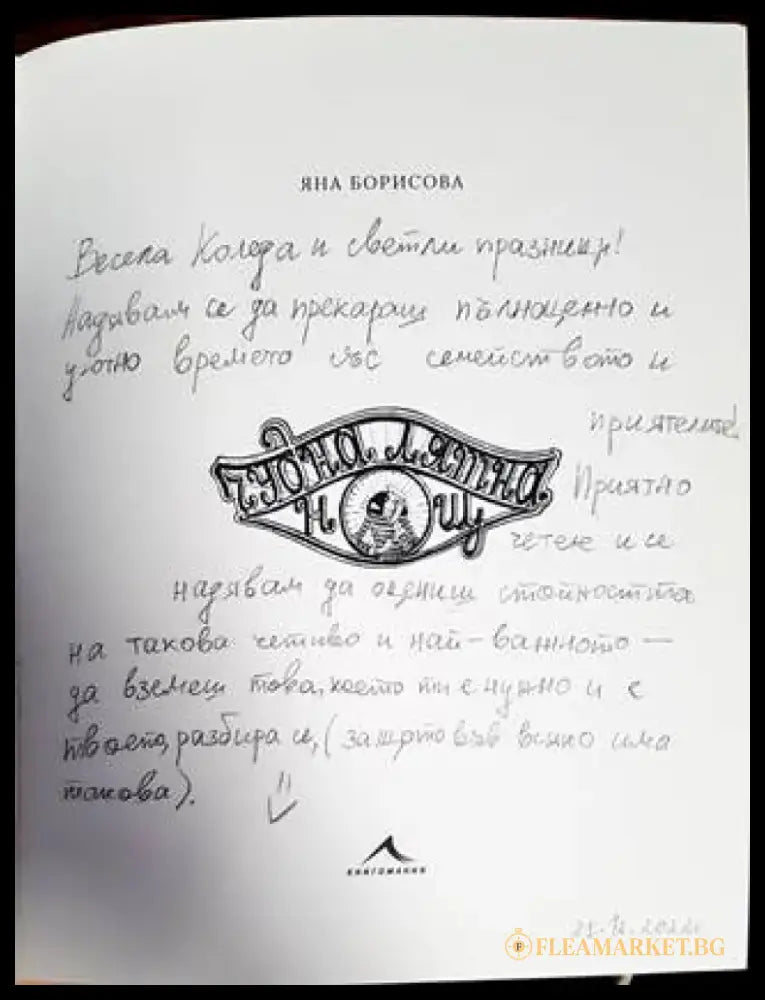 ЯНА БОРИСОВА
Весела Коледа и светли празници!
Надявам се да прекараш пълноценно и
уютно времето със семейството и
приятелите!
ЧУДНА ЛЯТНА
НОЩ
Приятно
четене и се
надявам да оцениш стойността
на такова четиво и най-важното —
да вземеш това, което ти е нужно и е
твоето, разбира се, (защото във всяко има
такова).
КНИГОМАНИЯ
FLEAMARKET.BG